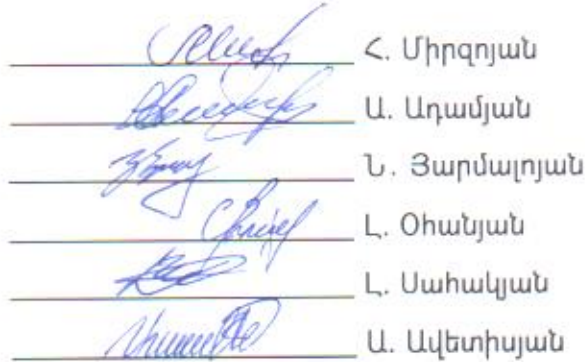 Հ. Միրզոյան
Ա. Ադամյան
Ն. Յարմալոյան
Լ. Օհանյան
Լ. Սահակյան
Ա. Ավետիսյան